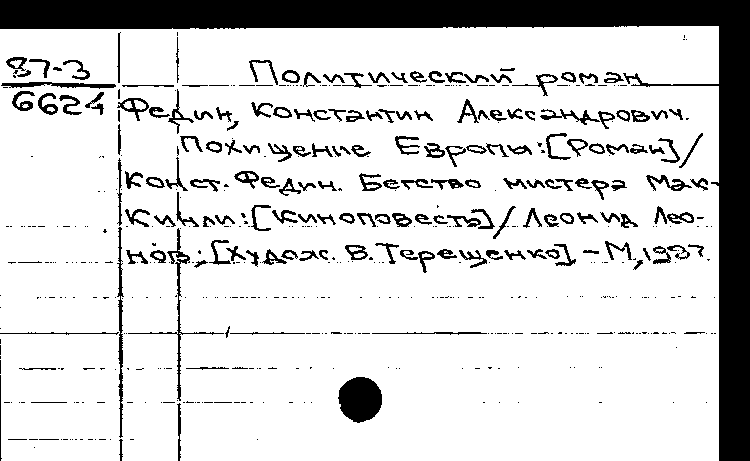 87-3 Политический роман
6624 Федин, Константин Александрович.
Похищение Европы: [Роман] /
Конст. Федин. Бегство мистера Мак-
Кинли: [Киноповесть] / Леонид Лео-
нов; [Худож. В. Терещенко] – М, 1987.